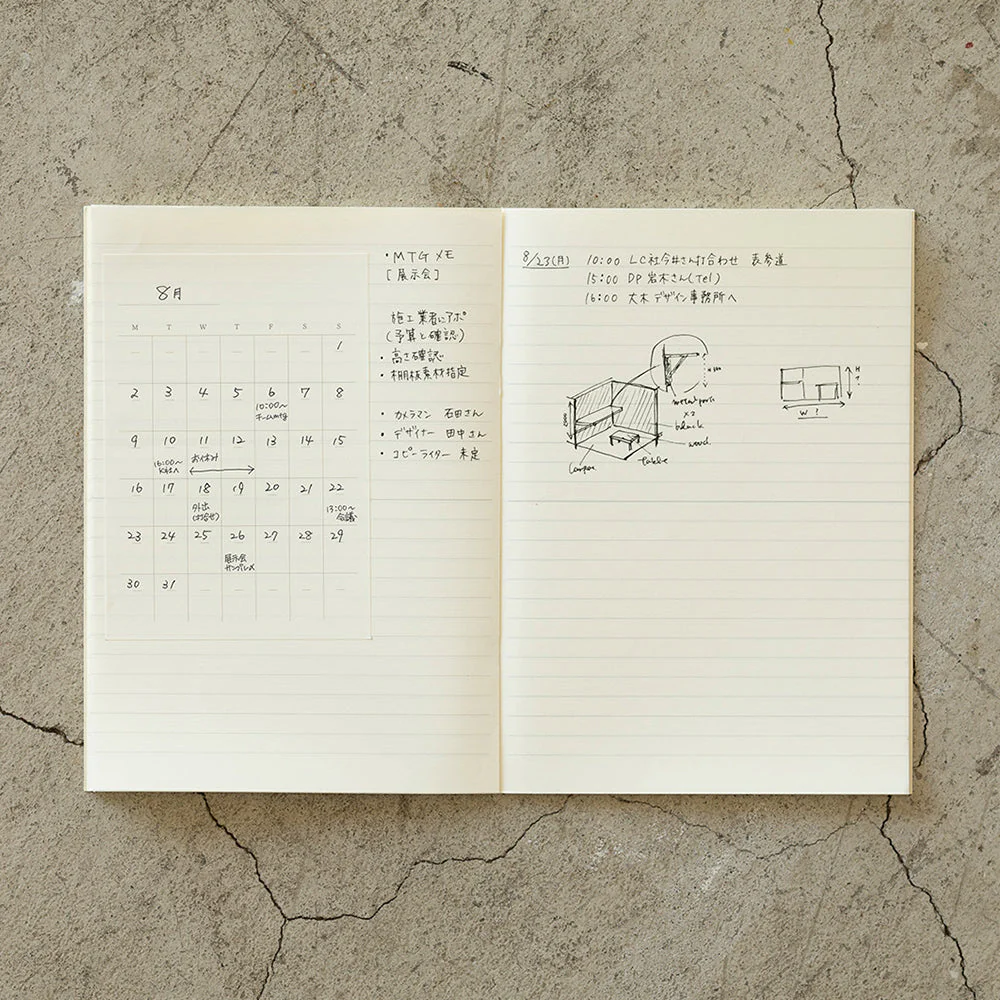 8月
M T W T F S S
1
2 3 4 5 6 7 8
10:00〜
チームmtg
9 10 11 12 13 14 15
16:00〜
K社へ
お休み
16 17 18 19 20 21 22
外出
(打合せ)
13:00〜
会議
23 24 25 26 27 28 29
展示会
サンプル〆
30 31
・MTGメモ
[展示会]
施工業者にアポ
(予算と確認)
・高さ確認
・棚板素材指定
・カメラマン 石田さん
・デザイナー 田中さん
・コピーライター 未定
8/23(月) 10:00 LC社今井さん打合わせ 表参道
15:00 DP 岩木さん(Tel)
16:00 大木デザイン事務所へ
x2
black
wood
table
H
?
W !